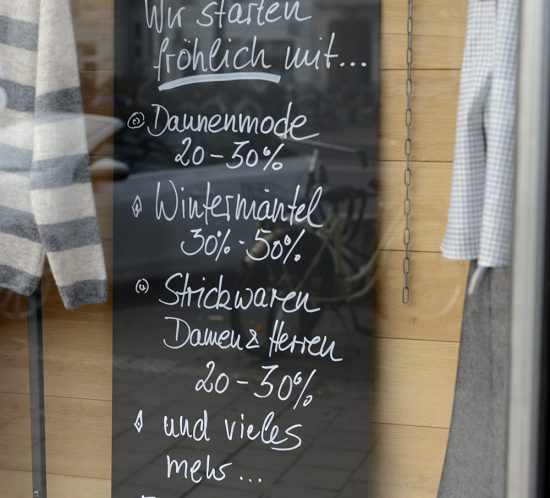 Wir starten
fröhlich mit...
Daunenmode
20-30%
Wintermäntel
30%-50%
Strickwaren
Damen & Herren
20-30%
und vieles
mehr...